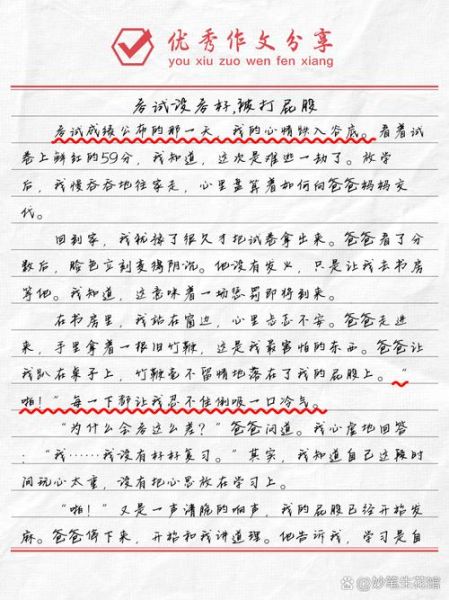 优秀作文分享
you xiu zuo wen fen xiang
考试没考好,被打屁股
考试成绩公布的那一天，我的心情跌入谷底。看着试
卷上鲜红的59分，我知道，这次是难逃一劫了。放学
后，我慢吞吞地往家走，心里盘算着如何向爸爸妈妈交
代。
回到家，我犹豫了很久才把试卷拿出来。爸爸看了分
数后，脸色立刻变得阴沉。他没有发火，只是让我去书房
等他。我知道，这意味着一场惩罚即将到来。
在书房里，我站在窗边，心里忐忑不安。爸爸走进
来，手里拿着一根旧竹鞭，这是我最害怕的东西。爸爸让
我趴在桌子上，竹鞭毫不留情地落在了我的屁股上。“
啪！”每一下都让我忍不住倒吸一口冷气。
“为什么会考这么差？”爸爸问道。我心虚地回答
：“我……我没有好好复习。”其实，我知道自己这段时
间玩心太重，没有把心思放在学习上。
“啪！”又是一声清脆的响声，我的屁股已经开始发
麻。爸爸停下来，开始和我讲道理。他告诉我，学习是自
妙笔生花馆